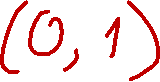 (0, 1)